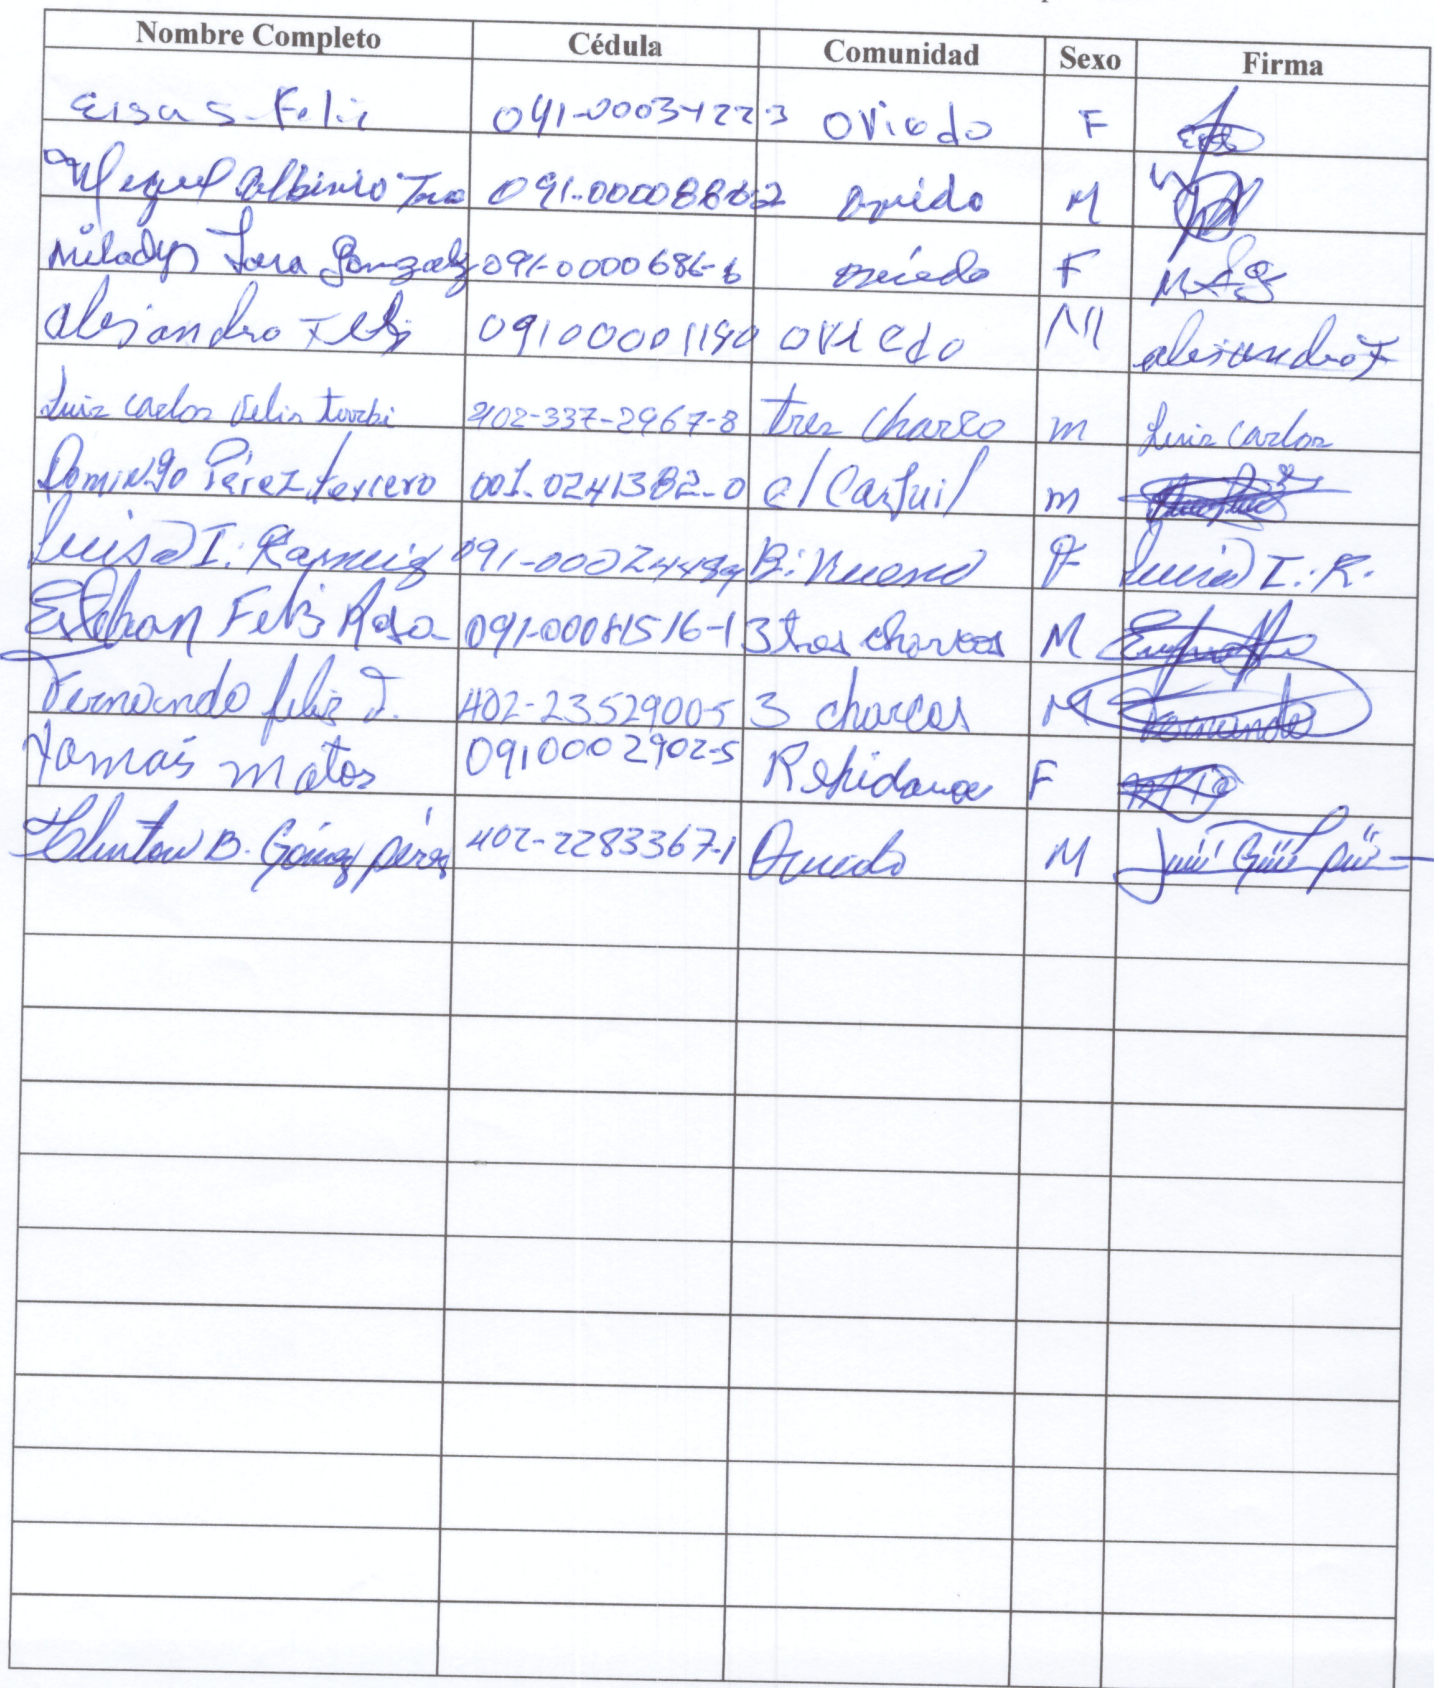 Nombre Completo Cédula Comunidad Sexo Firma
Elsa S. Feliz 091-0003422-3 Oviedo F
Miguel Albinio 091-0000886-2 Oviedo M
Milady Lara Gonzalez 091-0000686-6 Oviedo F
alejandro Feliz 09100001190 oviedo M alejandro F
Luiz carlos Felix turbi 402-337-2967-8 tres charco m Luiz carlos
Domingo Pérez tercero 001-0241382-0 m
Luisa I. Ramirez B. Nuevo F Luisa I. R.
Esteban Feliz Rosa 091-00081516-1 3 tres charcos M
Fernando feliz J. 402-23529005 3 charcos M Fernando
Tomás matos 0910002902-5 F
B. Gómez pérez 402-2283367-1 Oviedo M